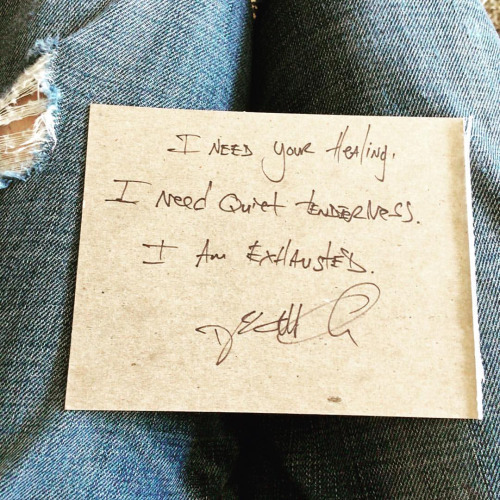 I NEED your Healing.
I need Quiet tENDERNess.
I Am EXHAUSTED.